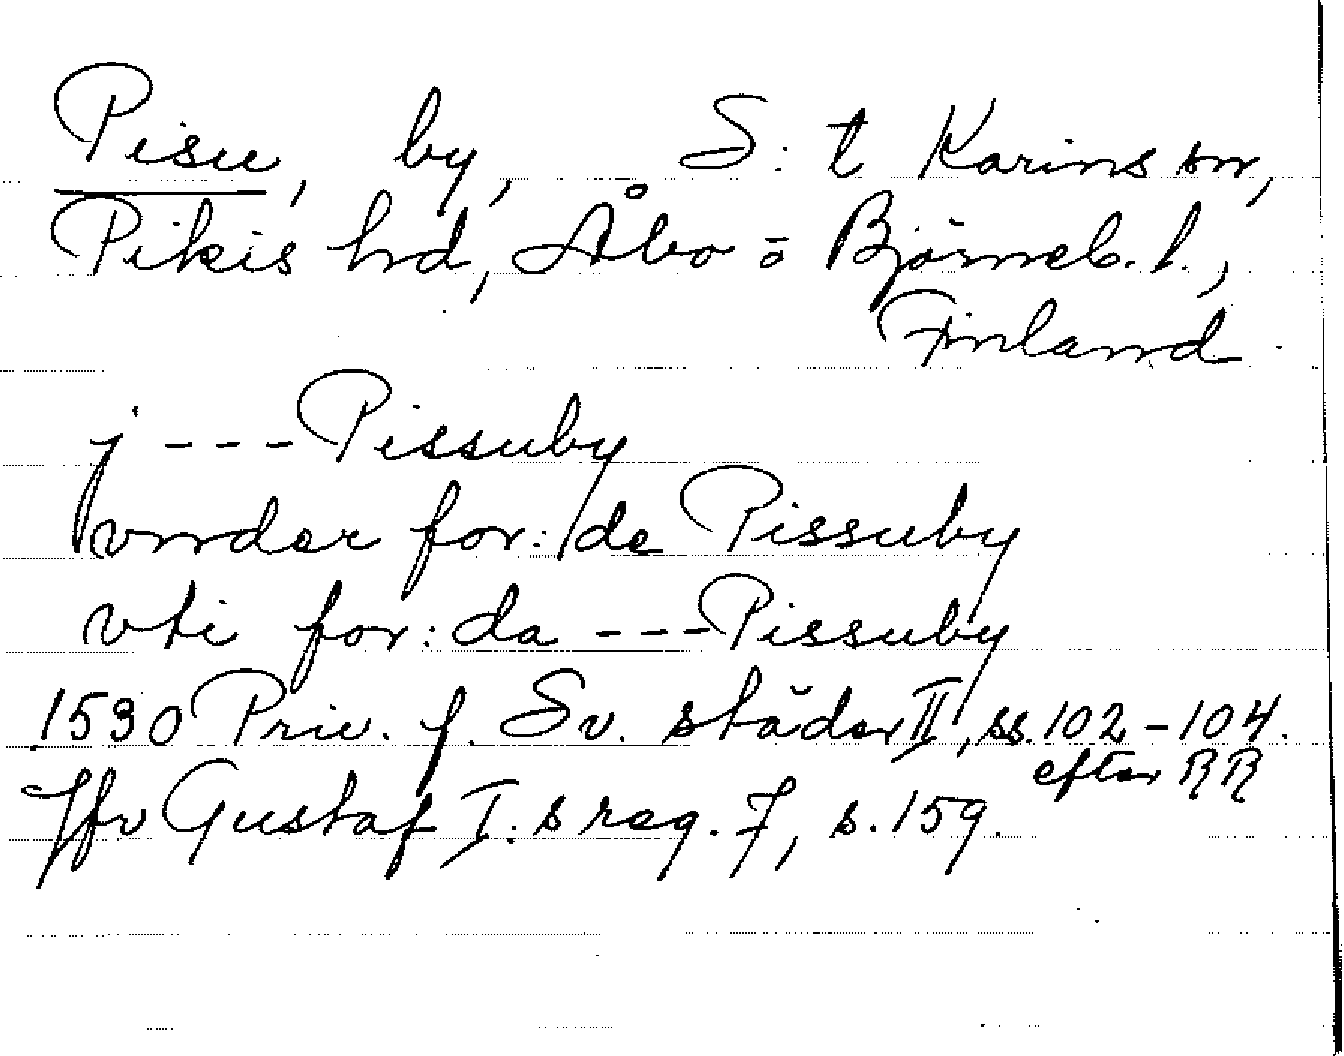 Pisu, by, S:t Karins sn,
Pikis hd, Åbo = Björneb. l.,
Finland
j --- Pissuby
vnder for:de Pissuby
vti for:da --- Pissuby
1530 Priv. f. Sv. städer II, ss. 102-104.
efter RR
Jfr Gustaf I:s reg. 7, s. 159.